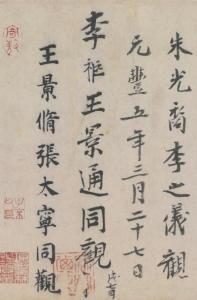 朱光裔李之儀觀
元豐五年三月二十七日
李樞王景通同觀
王景脩張太寧同觀